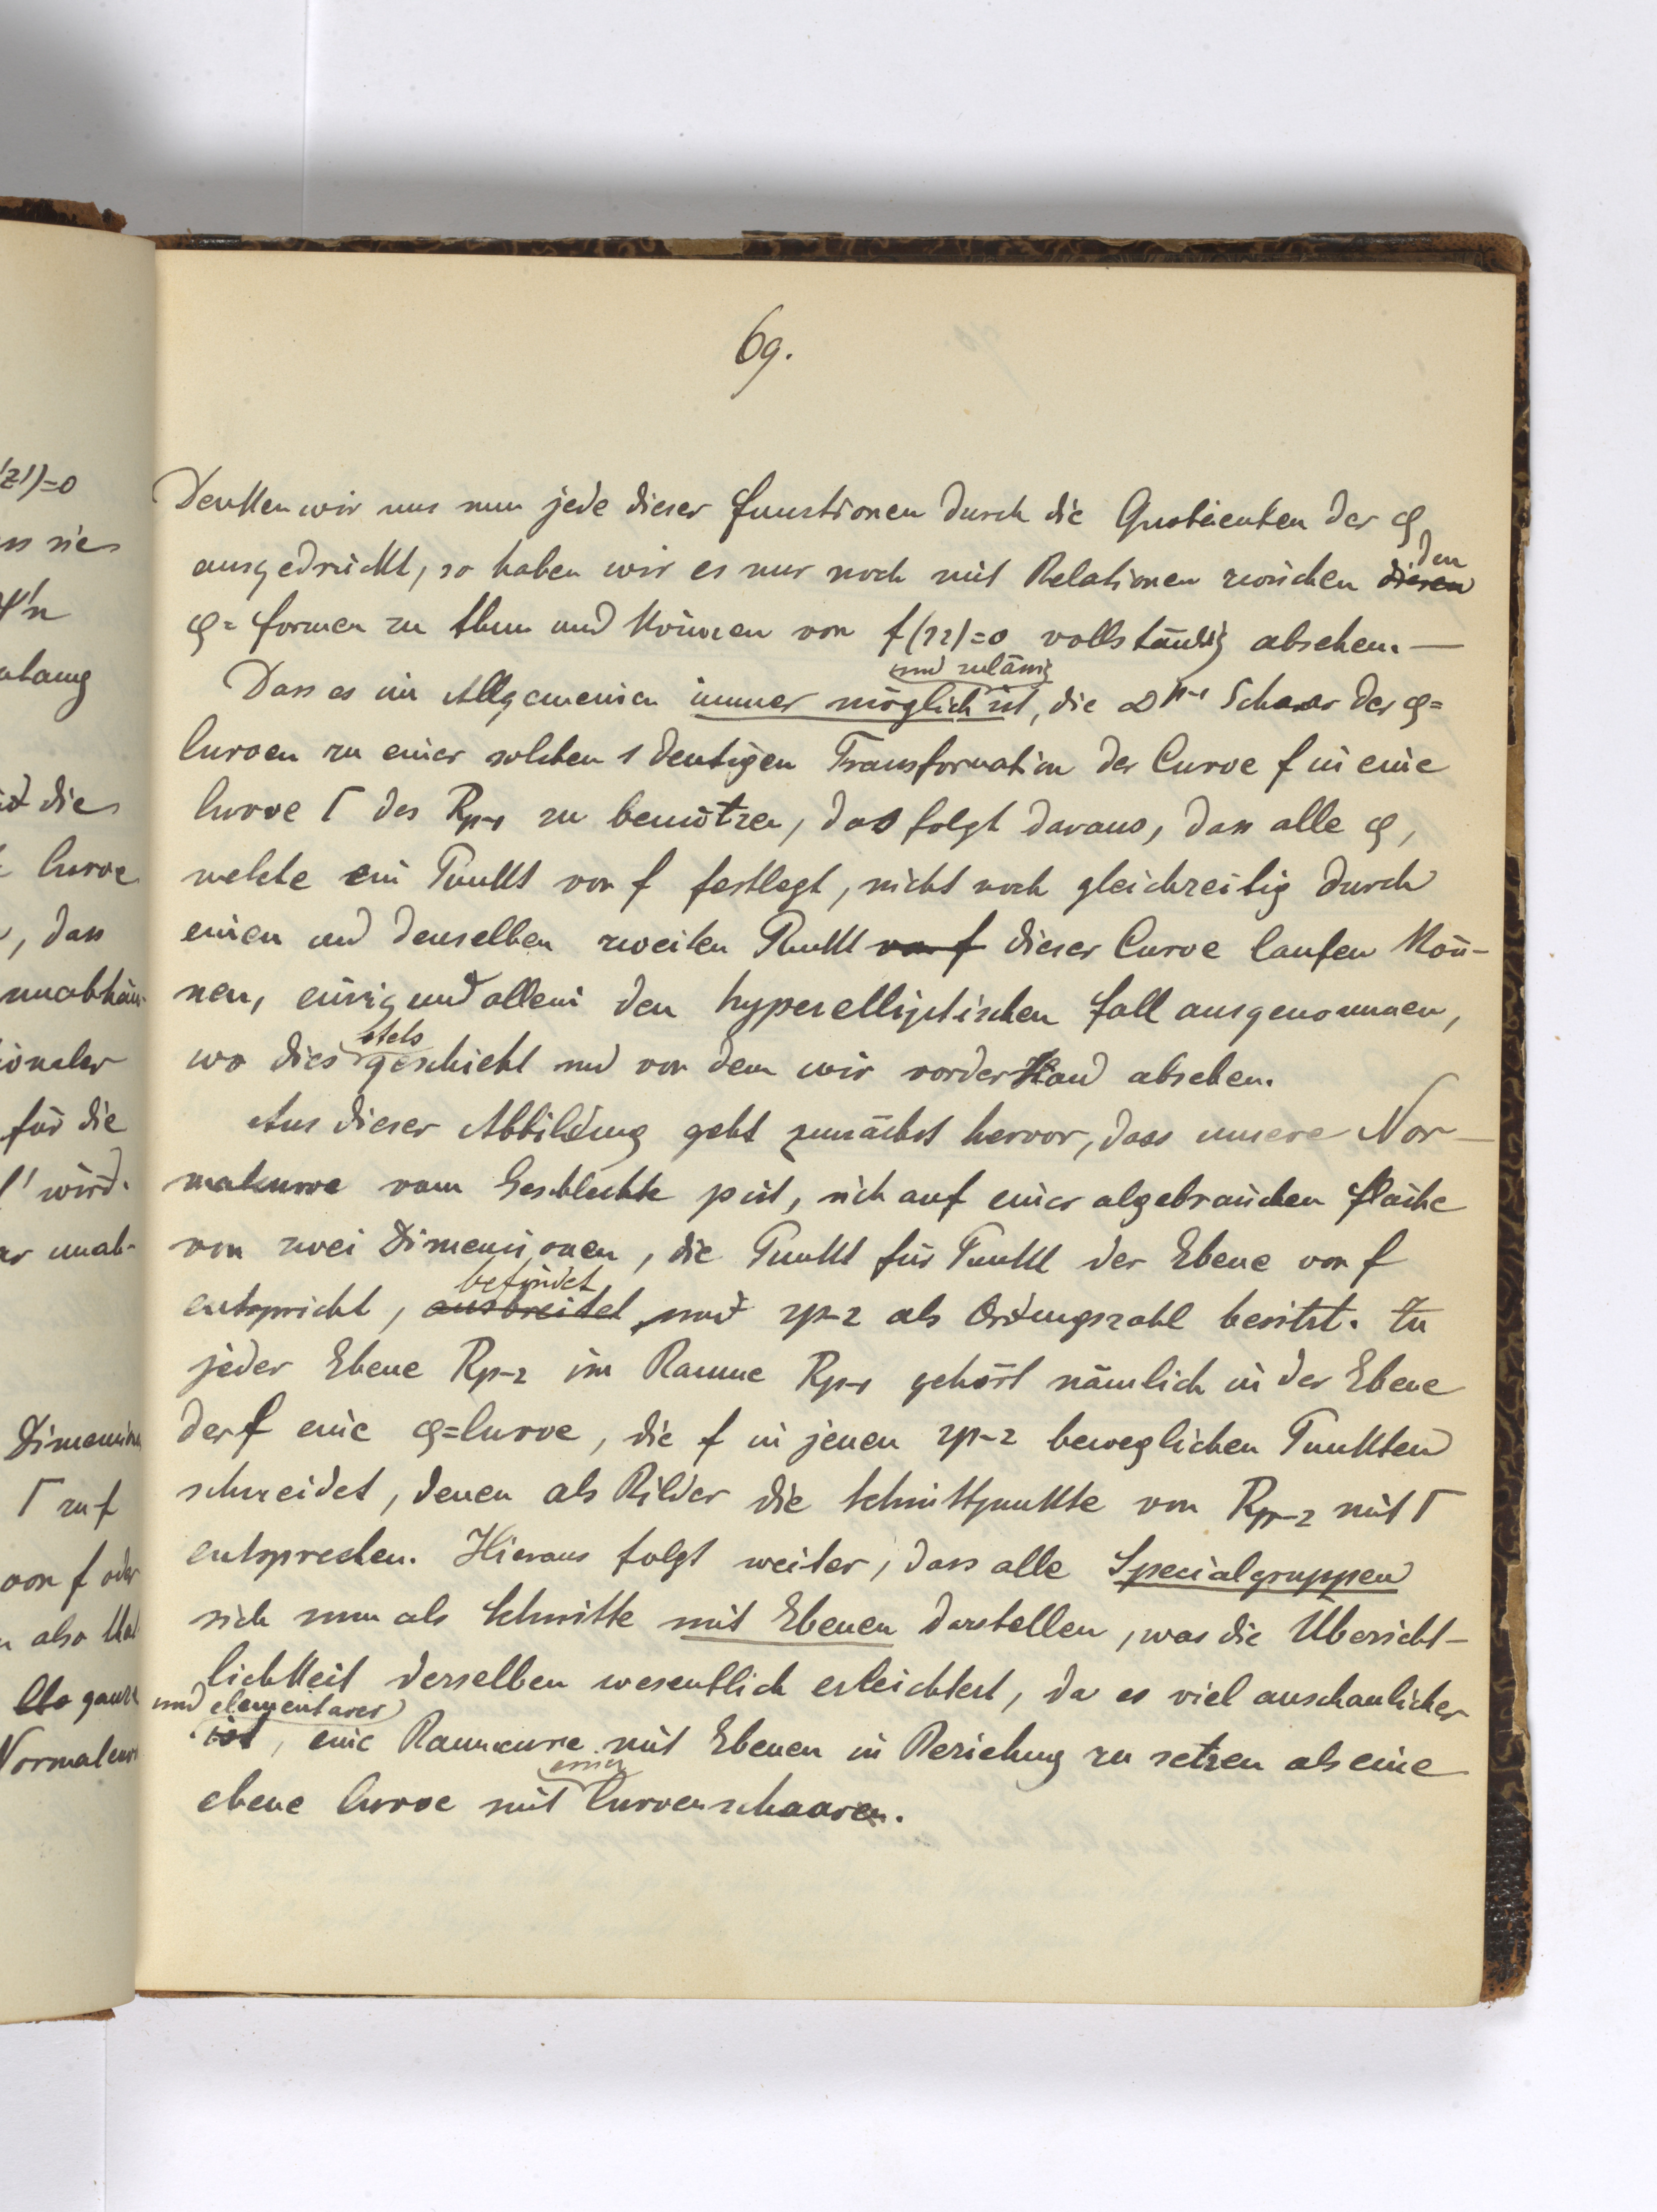 69.
Denken wir uns nun jede dieser Functionen durch die Quotienten der φ
ausgedrückt, so haben wir es nur noch mit Relationen zwischen diesen den
φ= Formen zu thun und können von f(zz)=0 vollständig absehen. —
und zulässig
Dass es im Allgemeinen immer möglich ist, die ∞^{p-1} Schaar der φ=
Curven zu einer solchen 1 deutigen Transformation der Curve f in eine
Curve Γ des R_{p-1} zu benützen, das folgt daraus, dass alle φ,
welche ein Punkt von f festlegt, nicht noch gleichzeitig durch
einen und denselben zweiten Punkt von f dieser Curve laufen kön-
nen, einzig und allein den hyperelliptischen Fall ausgenommen,
stets
wo dies geschieht und von dem wir vorderhand absehen.
Aus dieser Abbildung geht zunächst hervor, dass unsere Nor-
malcurve vom Geschlechte p ist, sich auf einer algebraischen Fläche
von zwei Dimensionen, die Punkt für Punkt der Ebene von f
befindet
entspricht, ausbreitet und 2p-2 als Ordnungszahl besitzt. Zu
jeder Ebene R_{p-2} im Raume R_{p-1} gehört nämlich in der Ebene
der f eine φ=Curve, die f in jenen 2p-2 beweglichen Punkten
schneidet, denen als Bilder die Schnittpunkte von R_{p-2} mit Γ
entsprechen. Hieraus folgt weiter, dass alle Specialgruppen
sich nun als Schnitte mit Ebenen darstellen, was die Übersicht-
lichkeit derselben wesentlich erleichtert, da es viel anschaulicher
und elementarer
ist, eine Raumcurve mit Ebenen in Beziehung zu setzen als eine
einer
ebene Curve mit Curvenschaaren.